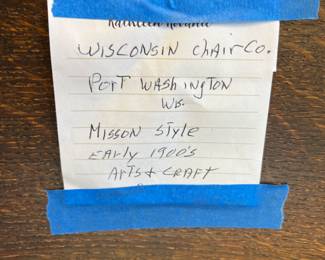 Kathleen
WISCONSIN CHAIR CO.
PORT WASHINGTON
WIS.
MISSON STYLE
EARLY 1900'S
ARTS + CRAFT